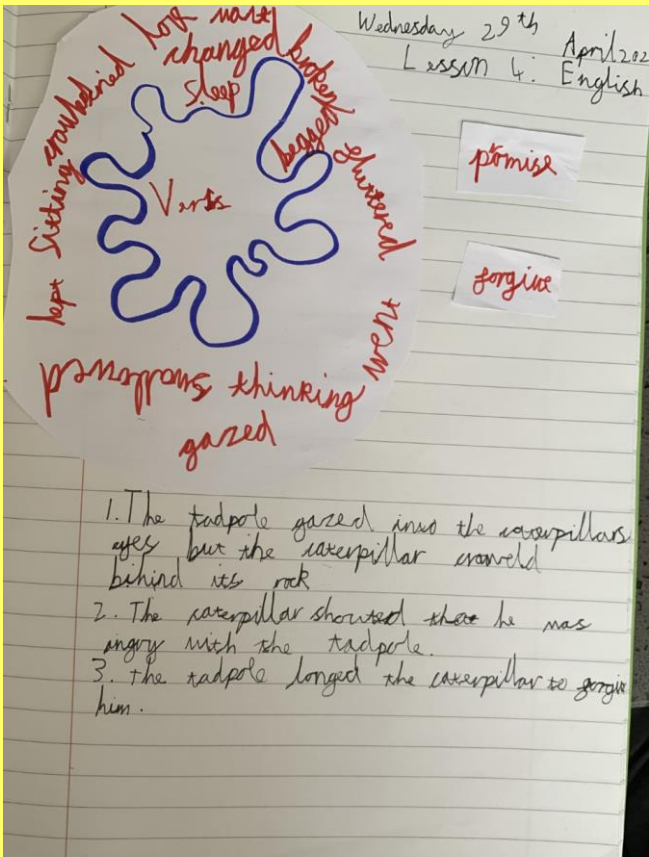 Wednesday 29th
April 202
Lesson 4: English
promise
forgive
Verbs
kept
sitting
look
wait
changed
sleep
broken
begged
fluttered
went
thinking
gazed
swallowed
1. The tadpole gazed into the caterpillars
eyes but the caterpillar craweld
behind its rock
2. The caterpillar shouted that he was
angry with the tadpole.
3. the tadpole longed the caterpillar to forgive
him.